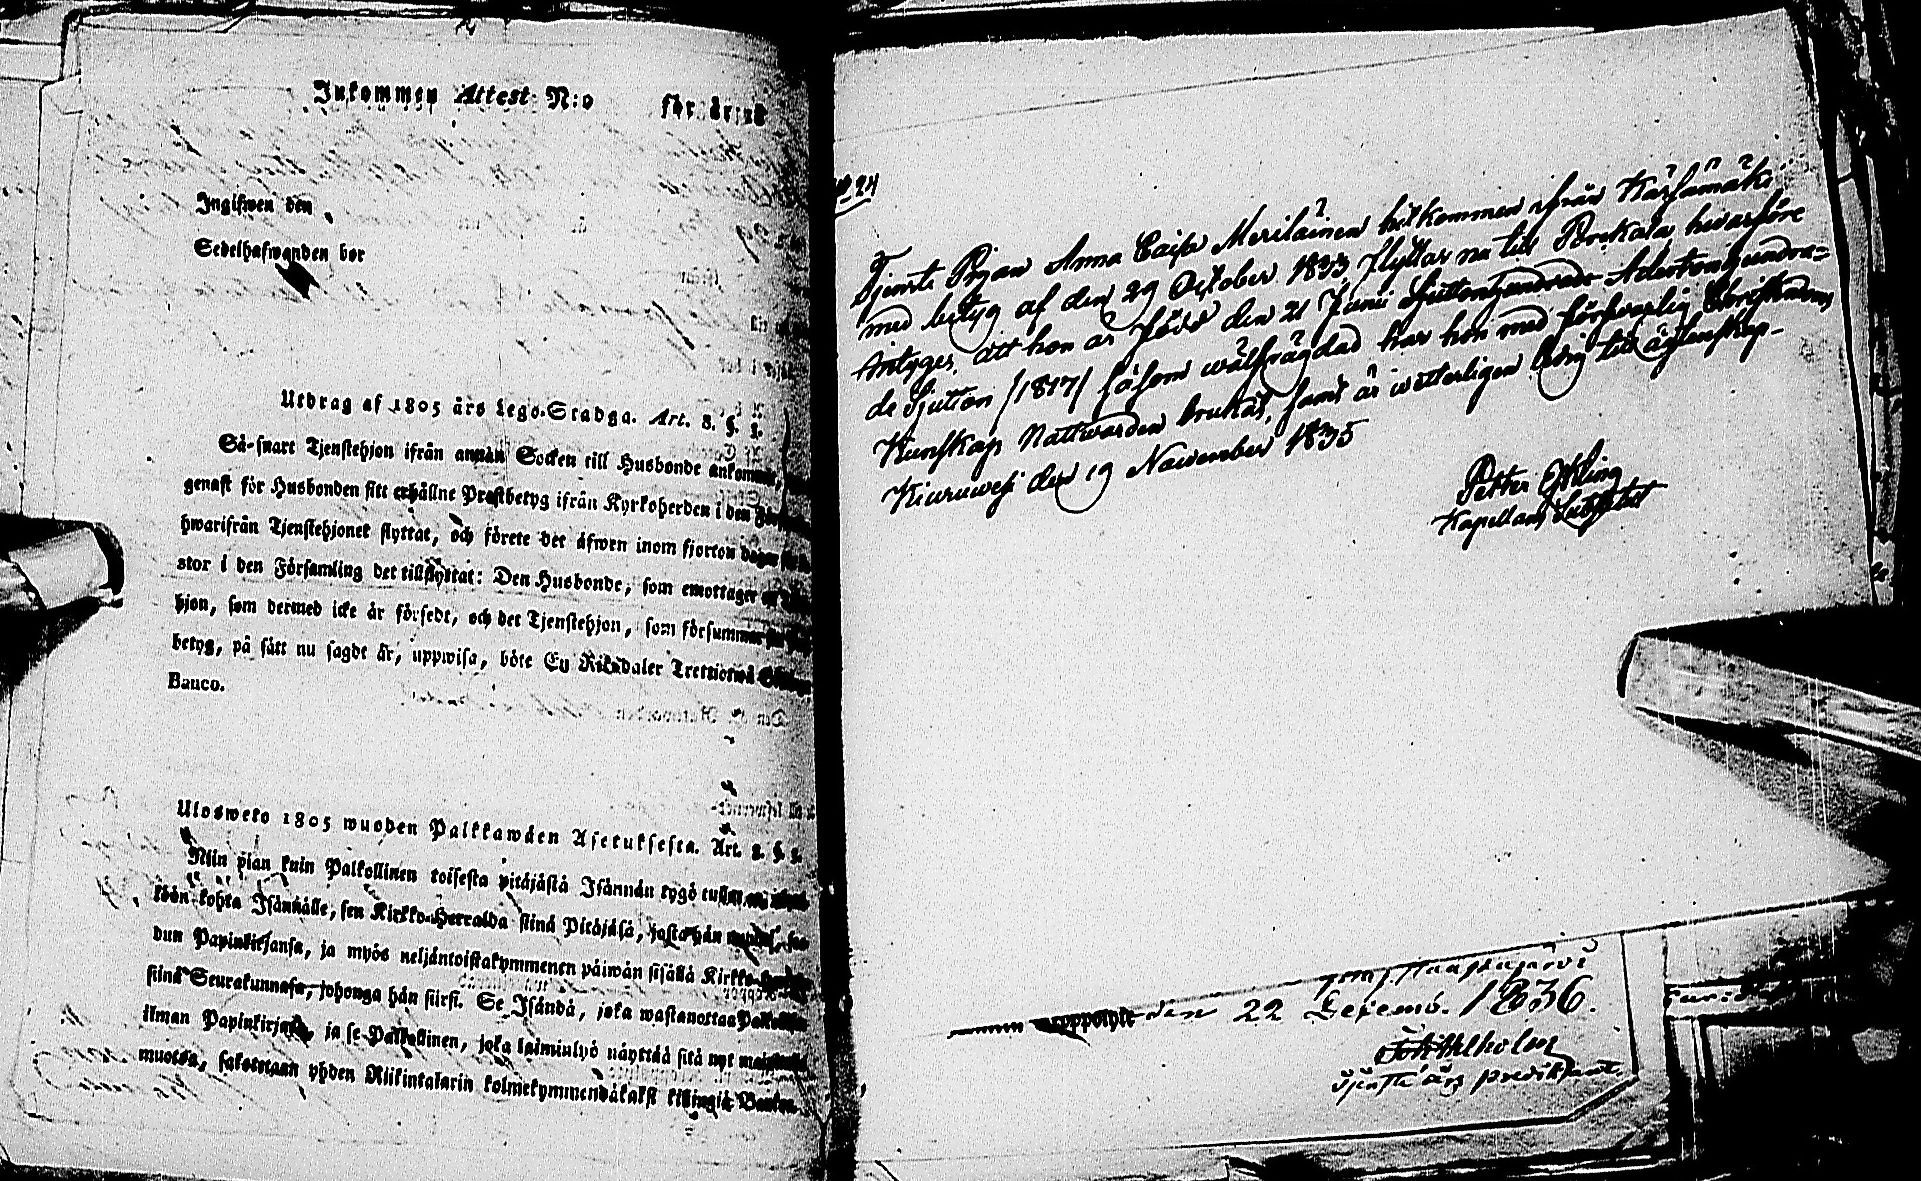 Inkommen Attest N:o för år
Ingifwen den
Sedelhafwanden bör
Utdrag af 1805 års Lego-Stadga. Art. 8. §. 1.
Så-snart Tjenstehjon ifrån annan Socken till Husbonde ankommer,
genast för Husbonden sitt erhållne Prestbetyg ifrån Kyrkoherden i den
hwarifrån Tjenstehjonet flyttat, och förete det äfwen inom fjorton dagar
stor i den Församling det tillflyttat: Den Husbonde, som emottager
hjon, som dermed icke är försedt, och det Tjenstehjon, som försummar
betyg, på sätt nu sagdt är, uppwisa, böte En Riksdaler Trettiotwå
Banco.
Ulosweto 1805 wuoden Palkkawäen Asetuksesta. Art. 8. §. 1.
Niin pian kuin Palkollinen toisesta pitäjästä Isännän tygö
kohta Isännälle, sen Kirkko-Herralda siinä Pitäjäsä, josta hän
dun Papinkirjansa, ja myös neljäntoistakymmenen päiwän sisällä Kirkko-
siinä Seurakunnasa, johonga hän siirsi. Se Isändä, joka wastanottaa
ilman Papinkirjata, ja se Palkollinen, joka laiminlyö näyttää sitä nyt
muotoa, sakotetaan yhden Riikintalarin kolmekymmendäkaksi killingiä Banko.
N:o 24
Tjenste Pigan Anna Caisa Meriläinen hitkommen ifrån Kärsämäki
med betyg af den 29 October 1833, flyttar nu till hwarföre
intyges, att hon är född den 21 Junii Sjuttonhundrade Adertonhundra-
de Sjutton /1817/ såsom wälfrägdad har hon med försvarlig Christendoms
Kunskap Nattwarden brukat, samt är wetterligen ledig till äglenskap-
Kiuruwesi den 19 November 1835
Petter Eskling
Kapellans Substitut
den 22 Decemb. 1836.